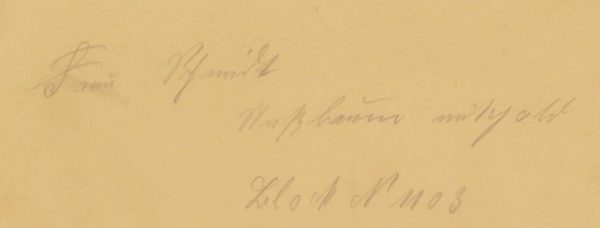 Frau Schmidt
Nußbaum
Block N 1103